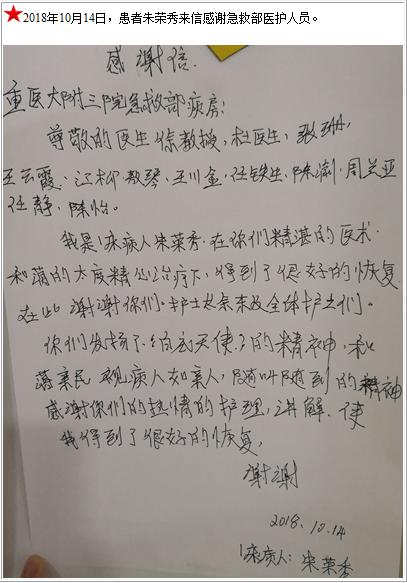 ★2018年10月14日，患者朱荣秀来信感谢急救部医护人员。
感谢信
重医大附三院急救部病房：
尊敬的医生徐教授，杜医生，张珊，
王云霞、江柳、敖琴、王川金，任铁生，陈澍，周兰亚
任静，陈怡。
我是1床病人朱荣秀.在你们精湛的医术.
和蔼的太度精心治疗下，得到了很好的恢复
在此谢谢你们。护士长 全体护士们。
你们发扬了白衣天使了的精神，和
蔼亲民 视病人如亲人，随叫随到的精神
感谢你们的热情的护理，讲解.使
我得到了很好的恢复，
谢谢
2018.10.14
1床病人：朱荣秀